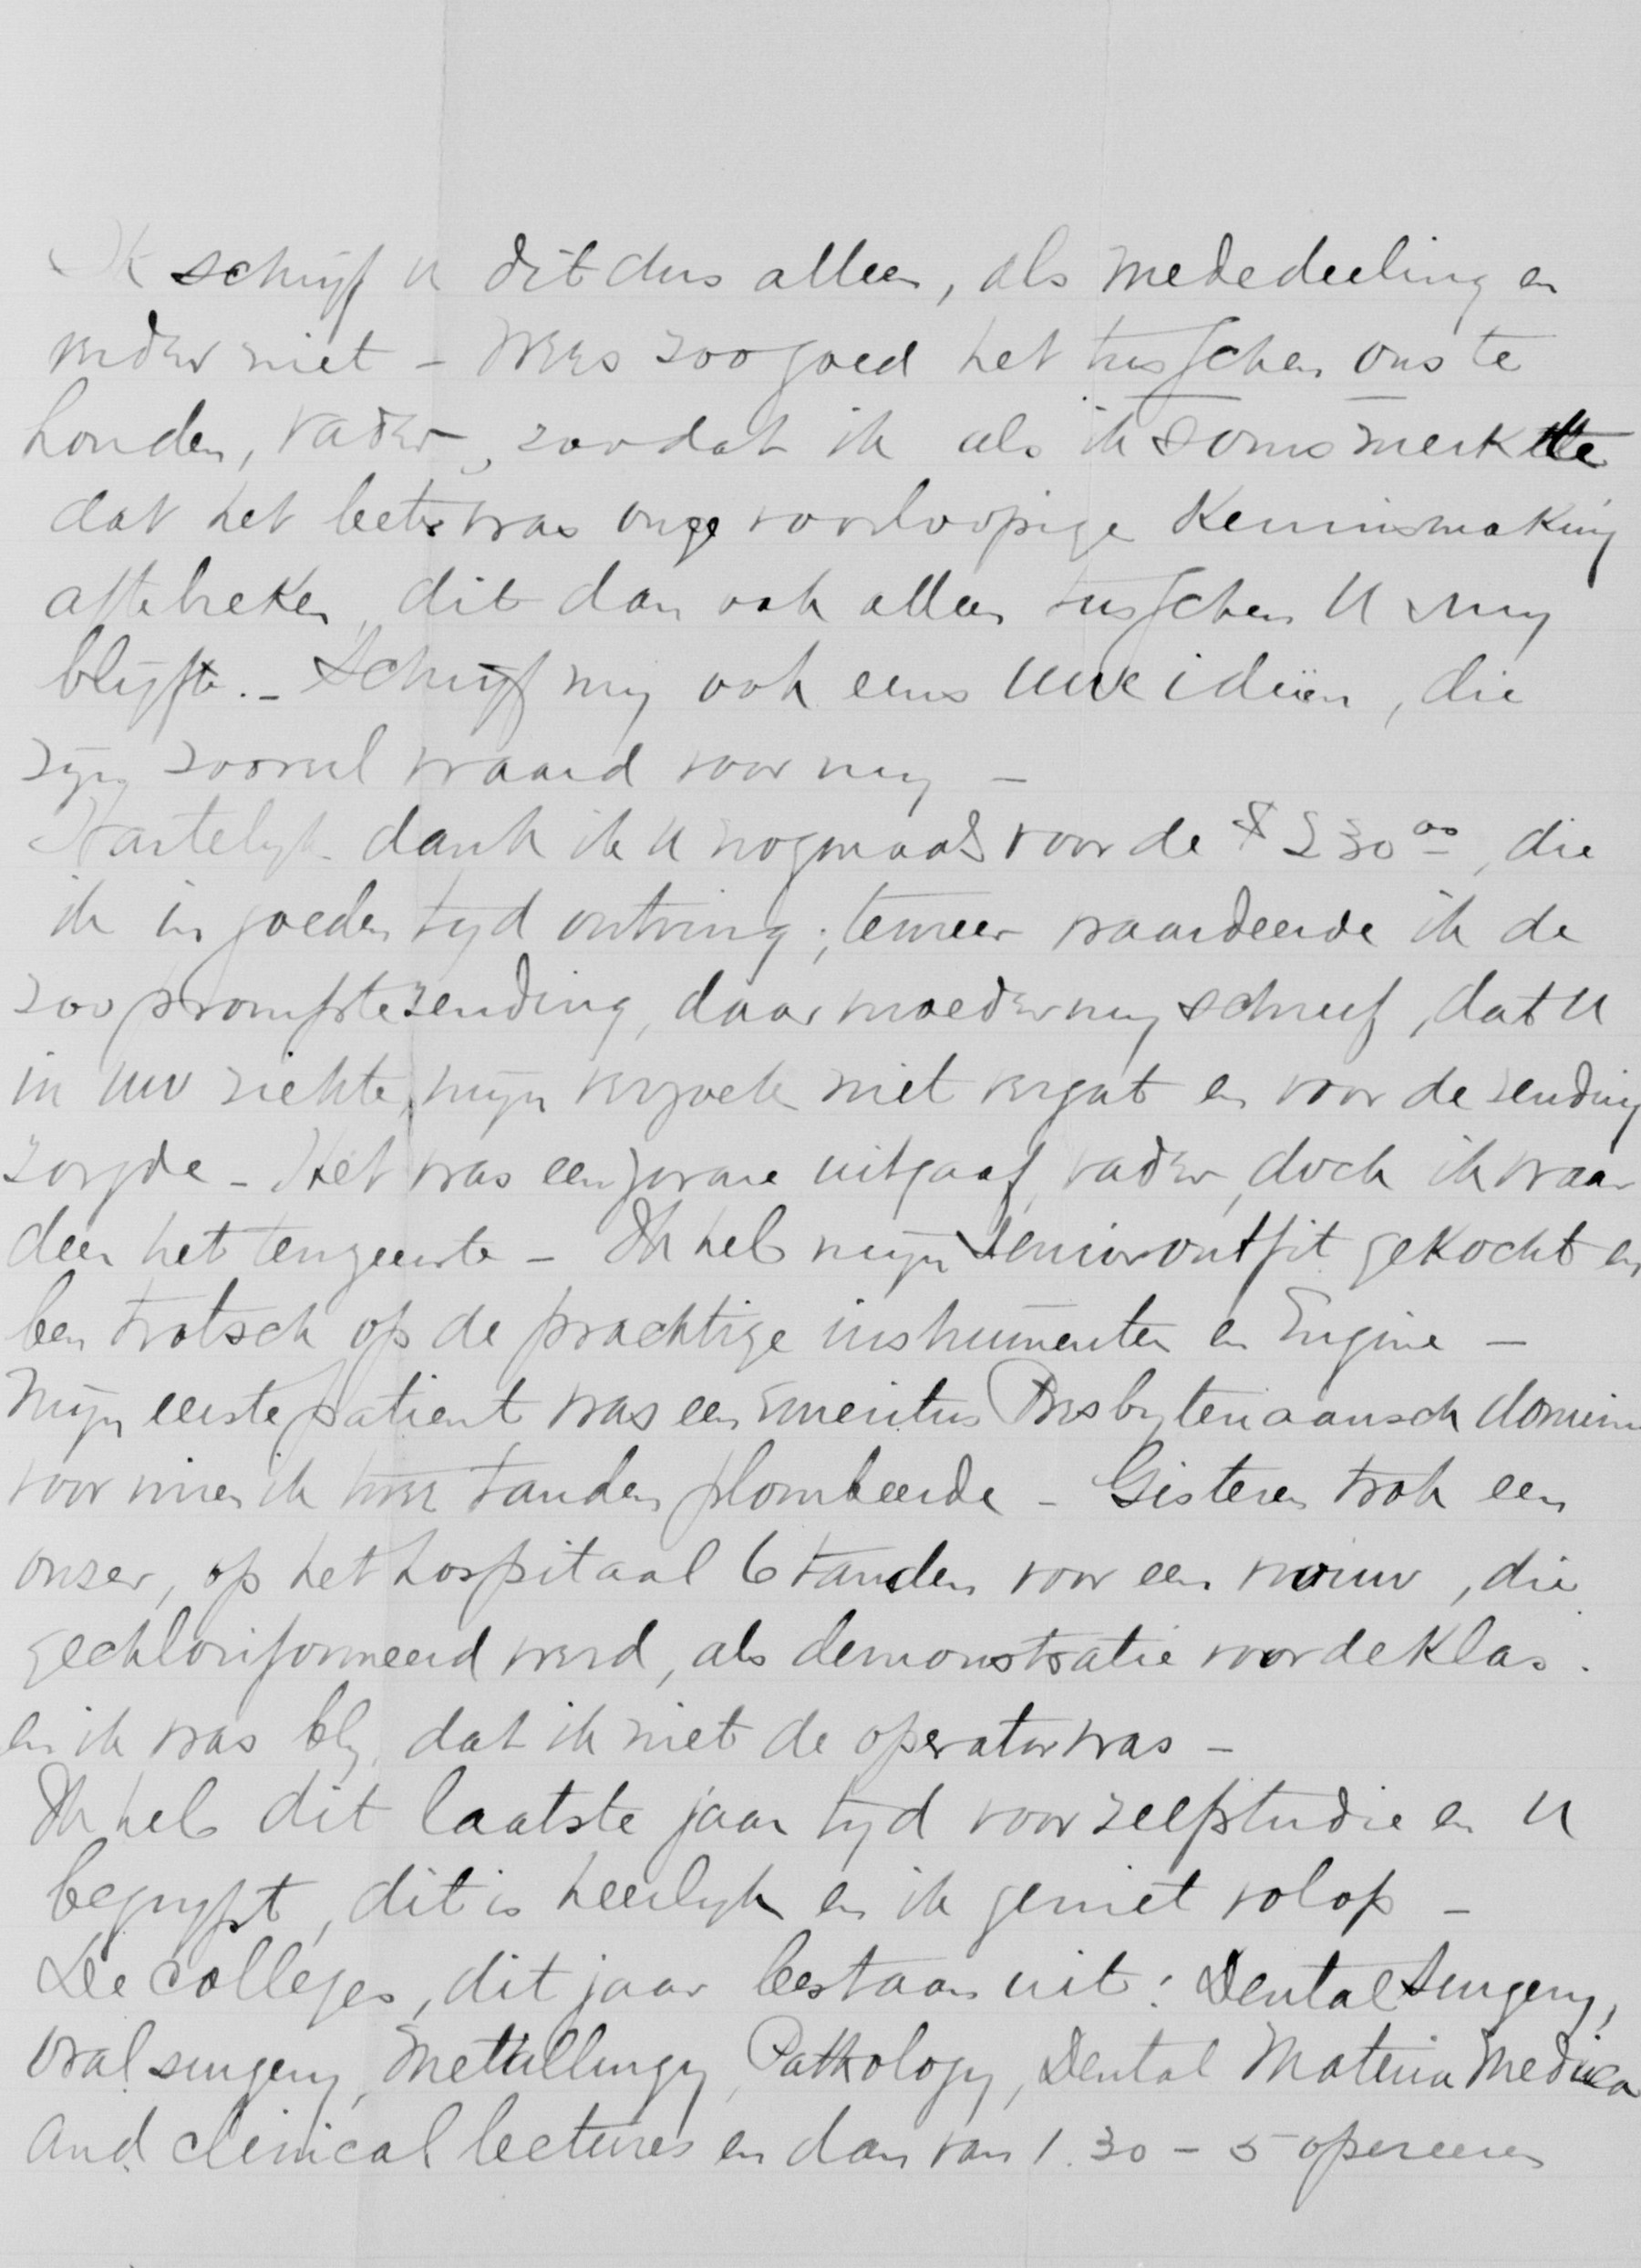 Ik schrijf u dit dus alleen, als mededeeling en
verder niet – Wees zoo goed het tusschen ons te
houden, vader, zoodat ik als ik soms merkte
dat het beter was onze voorloopige Kennismaking
aftebreken, dit dan ook alleen tusschen U & my
blijft. – Schrijf my ook eens uwe ideën, die
zijn zooveel waard voor my –
Hartelijk dank ik u nogmaals voor de $ 230 00, die
ik in goeden tyd ontving; temeer waardeerde ik de
zoo prompte zending, daar moeder my schreef, dat U
in uw ziekte, mijn verzoek niet vergat en voor de zending
zorgde – Het was een zware uitgaaf, vader, doch ik waar
deer het tenzeerste – Ik heb mijn Senior outfit gekocht en
ben trotsch op de prachtige instrumenten en Engine –
Mijn eerste patient was een Emeritus Presbyteriaansch domine
voor wien ik twee tanden plombeerde – Gisteren trok een
onzer, op het hospitaal 6 tanden voor een vrouw, die
gechloriformeerd werd, als demonstratie voor de Klas.
en ik was bly, dat ik niet de operator was –
Ik heb dit laatste jaar tyd voor zelfstudie en U
begrypt, dit is heerlyk en ik geniet volop –
De colleges, dit jaar bestaan uit: Dental Surgery,
Oral surgery, Metallurgy, Pathology, Dental Materia Medica
and clinical lectures en dan van 1.30 – 5 opereeren